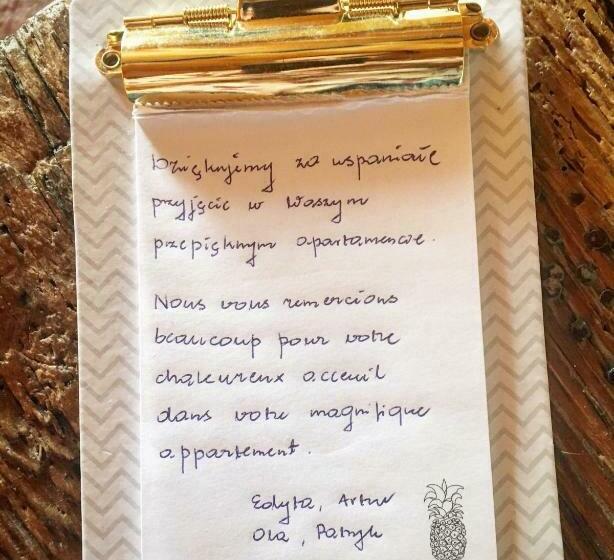 Dziękujemy za wspaniałe
przyjęcie w Waszym
przepięknym apartamencie.
Nous vous remercions
beaucoup pour votre
chaleureux acceuil
dans votre magnifique
appartement.
Edyta, Artur
Ola, Patryk